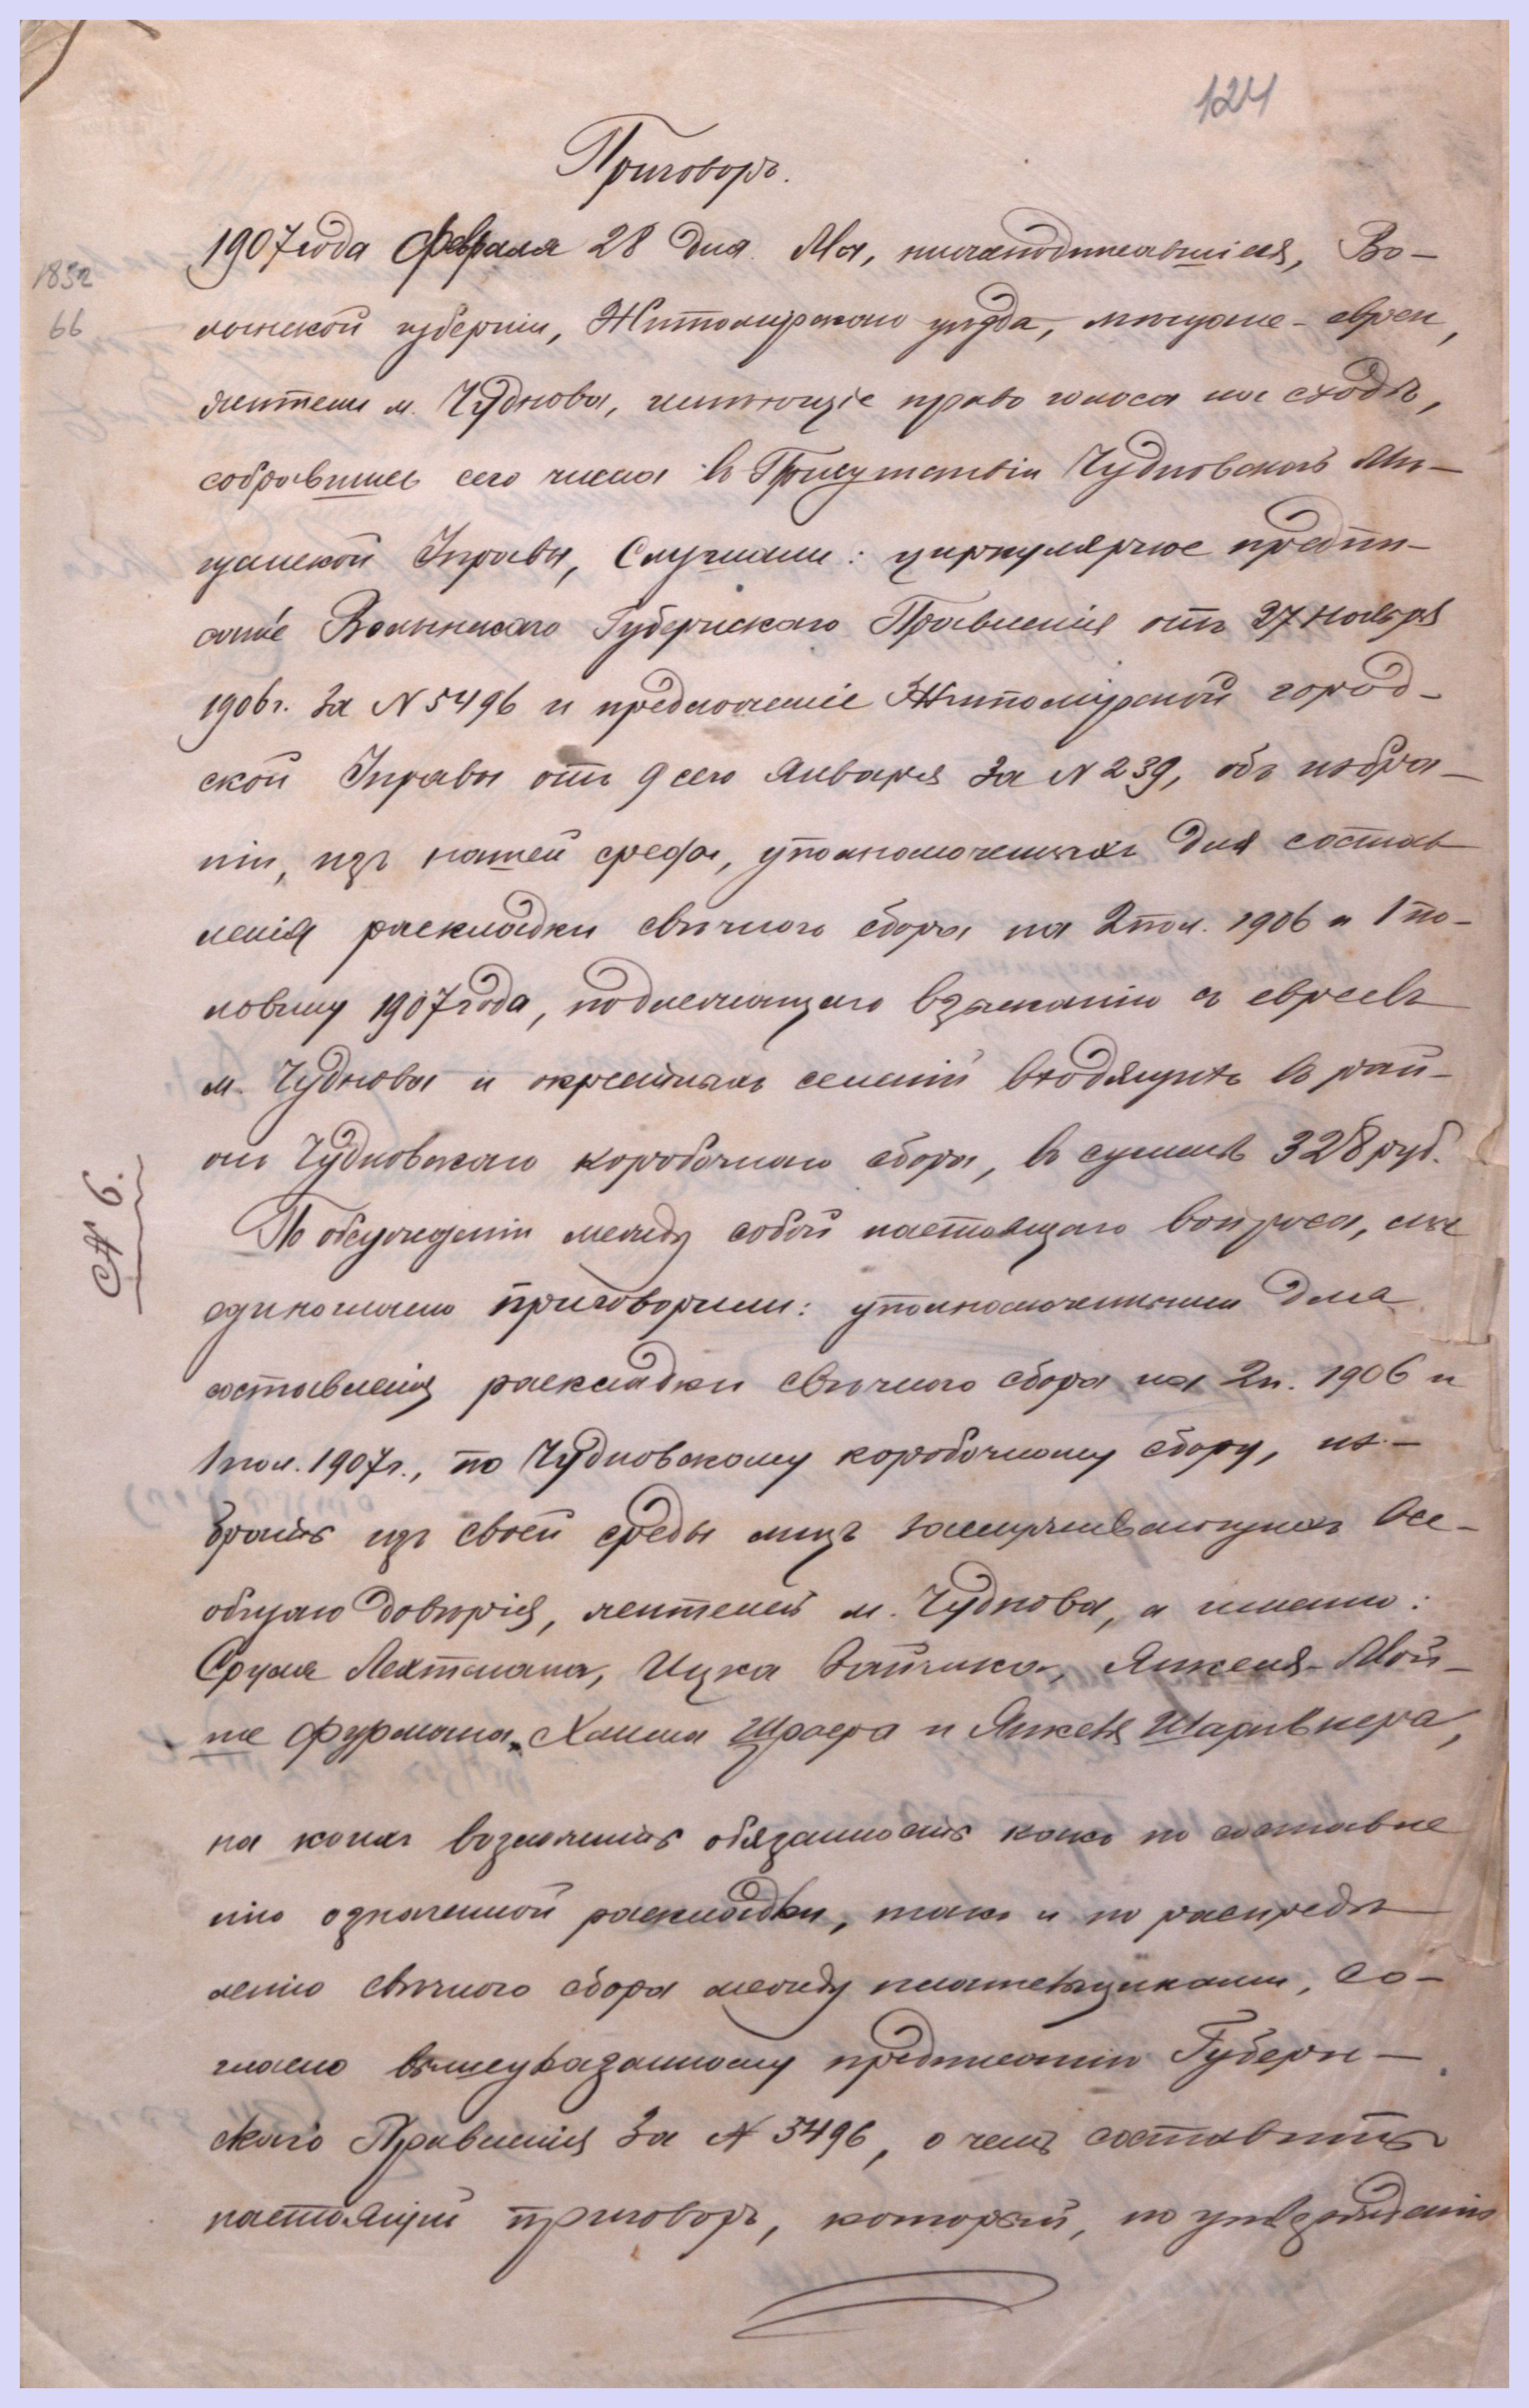 124
Приговоръ.
1907 года Февраля 28 дня. Мы, нижеподписавшіеся, Во-
1852
66
лынской губерніи, Житомирскаго уѣзда, мѣщане-евреи,
жители м. Чуднова, имѣющіе право голоса на сходѣ,
собравшись сего числа въ Присутствіи Чудновской Мѣ-
щанской Управы, Слушали: циркулярное предпи-
саніе Волынскаго Губернскаго Правленія отъ 27 Ноября
1906 г. за № 5496 и предложеніе Житомірской город-
ской Управы отъ 9 сего Января за № 239, объ избра-
ніи, изъ нашей среды, уполномоченныхъ для состав
ленія раскладки свѣчного сбора на 2 пол. 1906 и 1 по-
ловину 1907 года, подлежащаго взысканію съ евреевъ
м. Чуднова и окрестныхъ селеній входящихъ въ рай-
онъ Чудновскаго коробочнаго сбора, въ суммѣ 328 руб.
№ 6.
По обсужденіи между собой настоящаго вопроса, мы
единогласно приговорили: уполномоченными для
составленія раскладки свѣчного сбора на 2 п. 1906 и
1 пол. 1907 г., по Чудновскому коробочному сбору, из-
брать изъ своей среды лицъ заслуживающихъ все-
общаго довѣрія, жителей м. Чуднова, а именно:
Сруля Лехтмана, Ицка Зайчика, Янкеля-Мой-
ше Фурмана, Хаима Шраера и Янкеля Шаривкера,
на коихъ возложить обязанность какъ по составле
нію означенной раскладки, такъ и по распредѣ
ленію свѣчного сбора между плательщиками, со-
гласно вышеуказанному предписанію Губерн-
скаго Правленія за № 5496, о чемъ составить
настоящій приговоръ, который, по утвержденіи